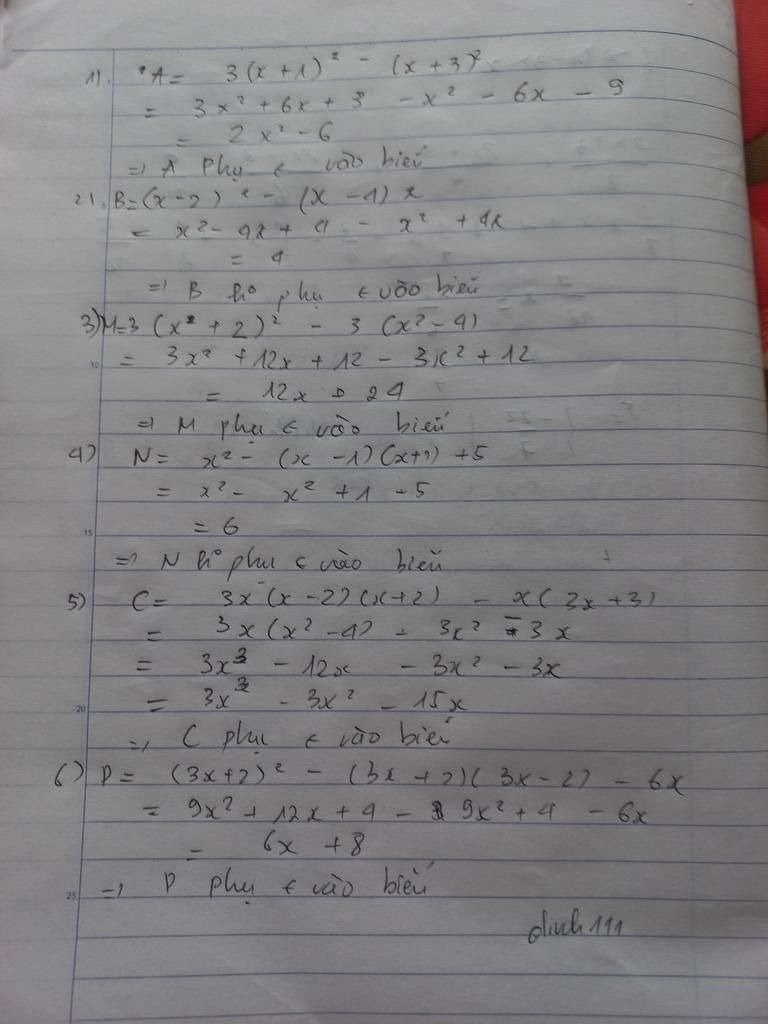 1). A = 3(x+1)² - (x+3)²
= 3x² + 6x + 3 - x² - 6x - 9
= 2x² - 6
=> A phụ ∈ vào biến
2). B = (x-2)² - (x-4)x
= x² - 4x + 4 - x² + 4x
= 4
=> B ko phụ ∈ vào biến
3) M = 3(x + 2)² - 3(x² - 4)
= 3x² + 12x + 12 - 3x² + 12
= 12x + 24
=> M phụ ∈ vào biến
4) N = x² - (x-1)(x+1) + 5
= x² - x² + 1 + 5
= 6
=> N ko phụ ∈ vào biến
5) C = 3x(x-2)(x+2) - x(3x+3)
= 3x(x²-4) - 3x² - 3x
= 3x³ - 12x - 3x² - 3x
= 3x³ - 3x² - 15x
=> C phụ ∈ vào biến
6) D = (3x+2)² - (3x+2)(3x-2) - 6x
= 9x² + 12x + 4 - 9x² + 4 - 6x
= 6x + 8
=> D phụ ∈ vào biến
dinh111